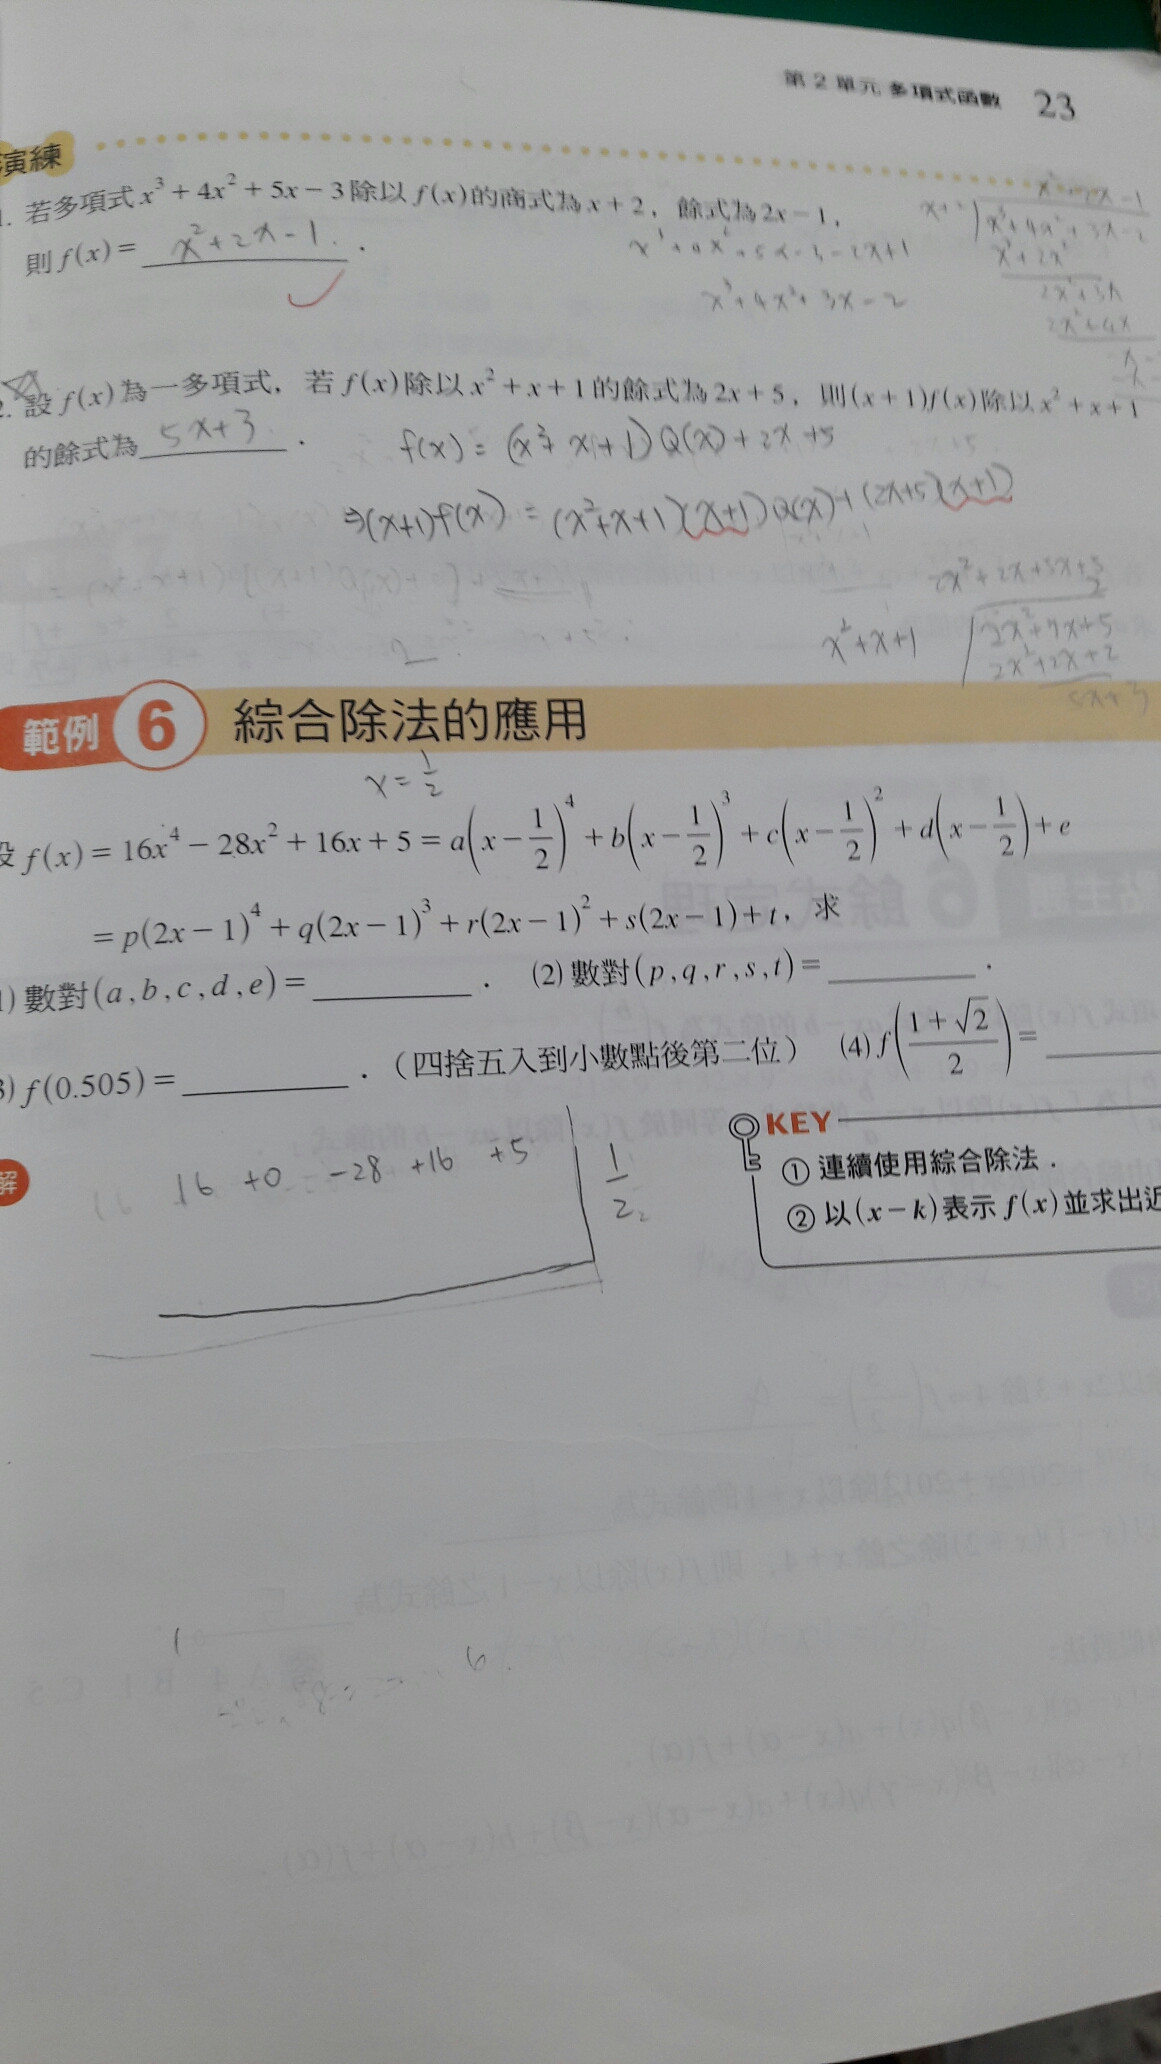 第 2 單元 多項式函數 23
演練
1. 若多項式 x³ + 4x² + 5x − 3 除以 f(x) 的商式為 x + 2，餘式為 2x − 1，
則 f(x) = x² + 2x − 1 .
x³ + 4x² + 5x − 3 − 2x + 1
x³ + 4x² + 3x − 2
x³ + 4x² + 3x − 2
x³ + 2x²
2x² + 3x
2x² + 4x
2. 設 f(x) 為一多項式，若 f(x) 除以 x² + x + 1 的餘式為 2x + 5，則 (x + 1)f(x) 除以 x² + x + 1
的餘式為 5x + 3 .
f(x) = (x² + x + 1) Q(x) + 2x + 5
⇒ (x+1) f(x) = (x² + x + 1)(x+1) Q(x) + (2x+5)(x+1)
2x² + 2x + 5x + 5
2
x² + x + 1
2x² + 7x + 5
2x² + 2x + 2
5x + 3
範例 6 綜合除法的應用
x = 1/2
設 f(x) = 16x⁴ − 28x² + 16x + 5 = a(x − 1/2)⁴ + b(x − 1/2)³ + c(x − 1/2)² + d(x − 1/2) + e
= p(2x − 1)⁴ + q(2x − 1)³ + r(2x − 1)² + s(2x − 1) + t，求
(1) 數對 (a , b , c , d , e) = ______ . (2) 數對 (p , q , r , s , t) = ______ .
(3) f(0.505) = ______ .（四捨五入到小數點後第二位） (4) f((1 + √2)/2) = ______
解
16 +0 −28 +16 +5 | 1/2
KEY
① 連續使用綜合除法 .
② 以 (x − k) 表示 f(x) 並求出近